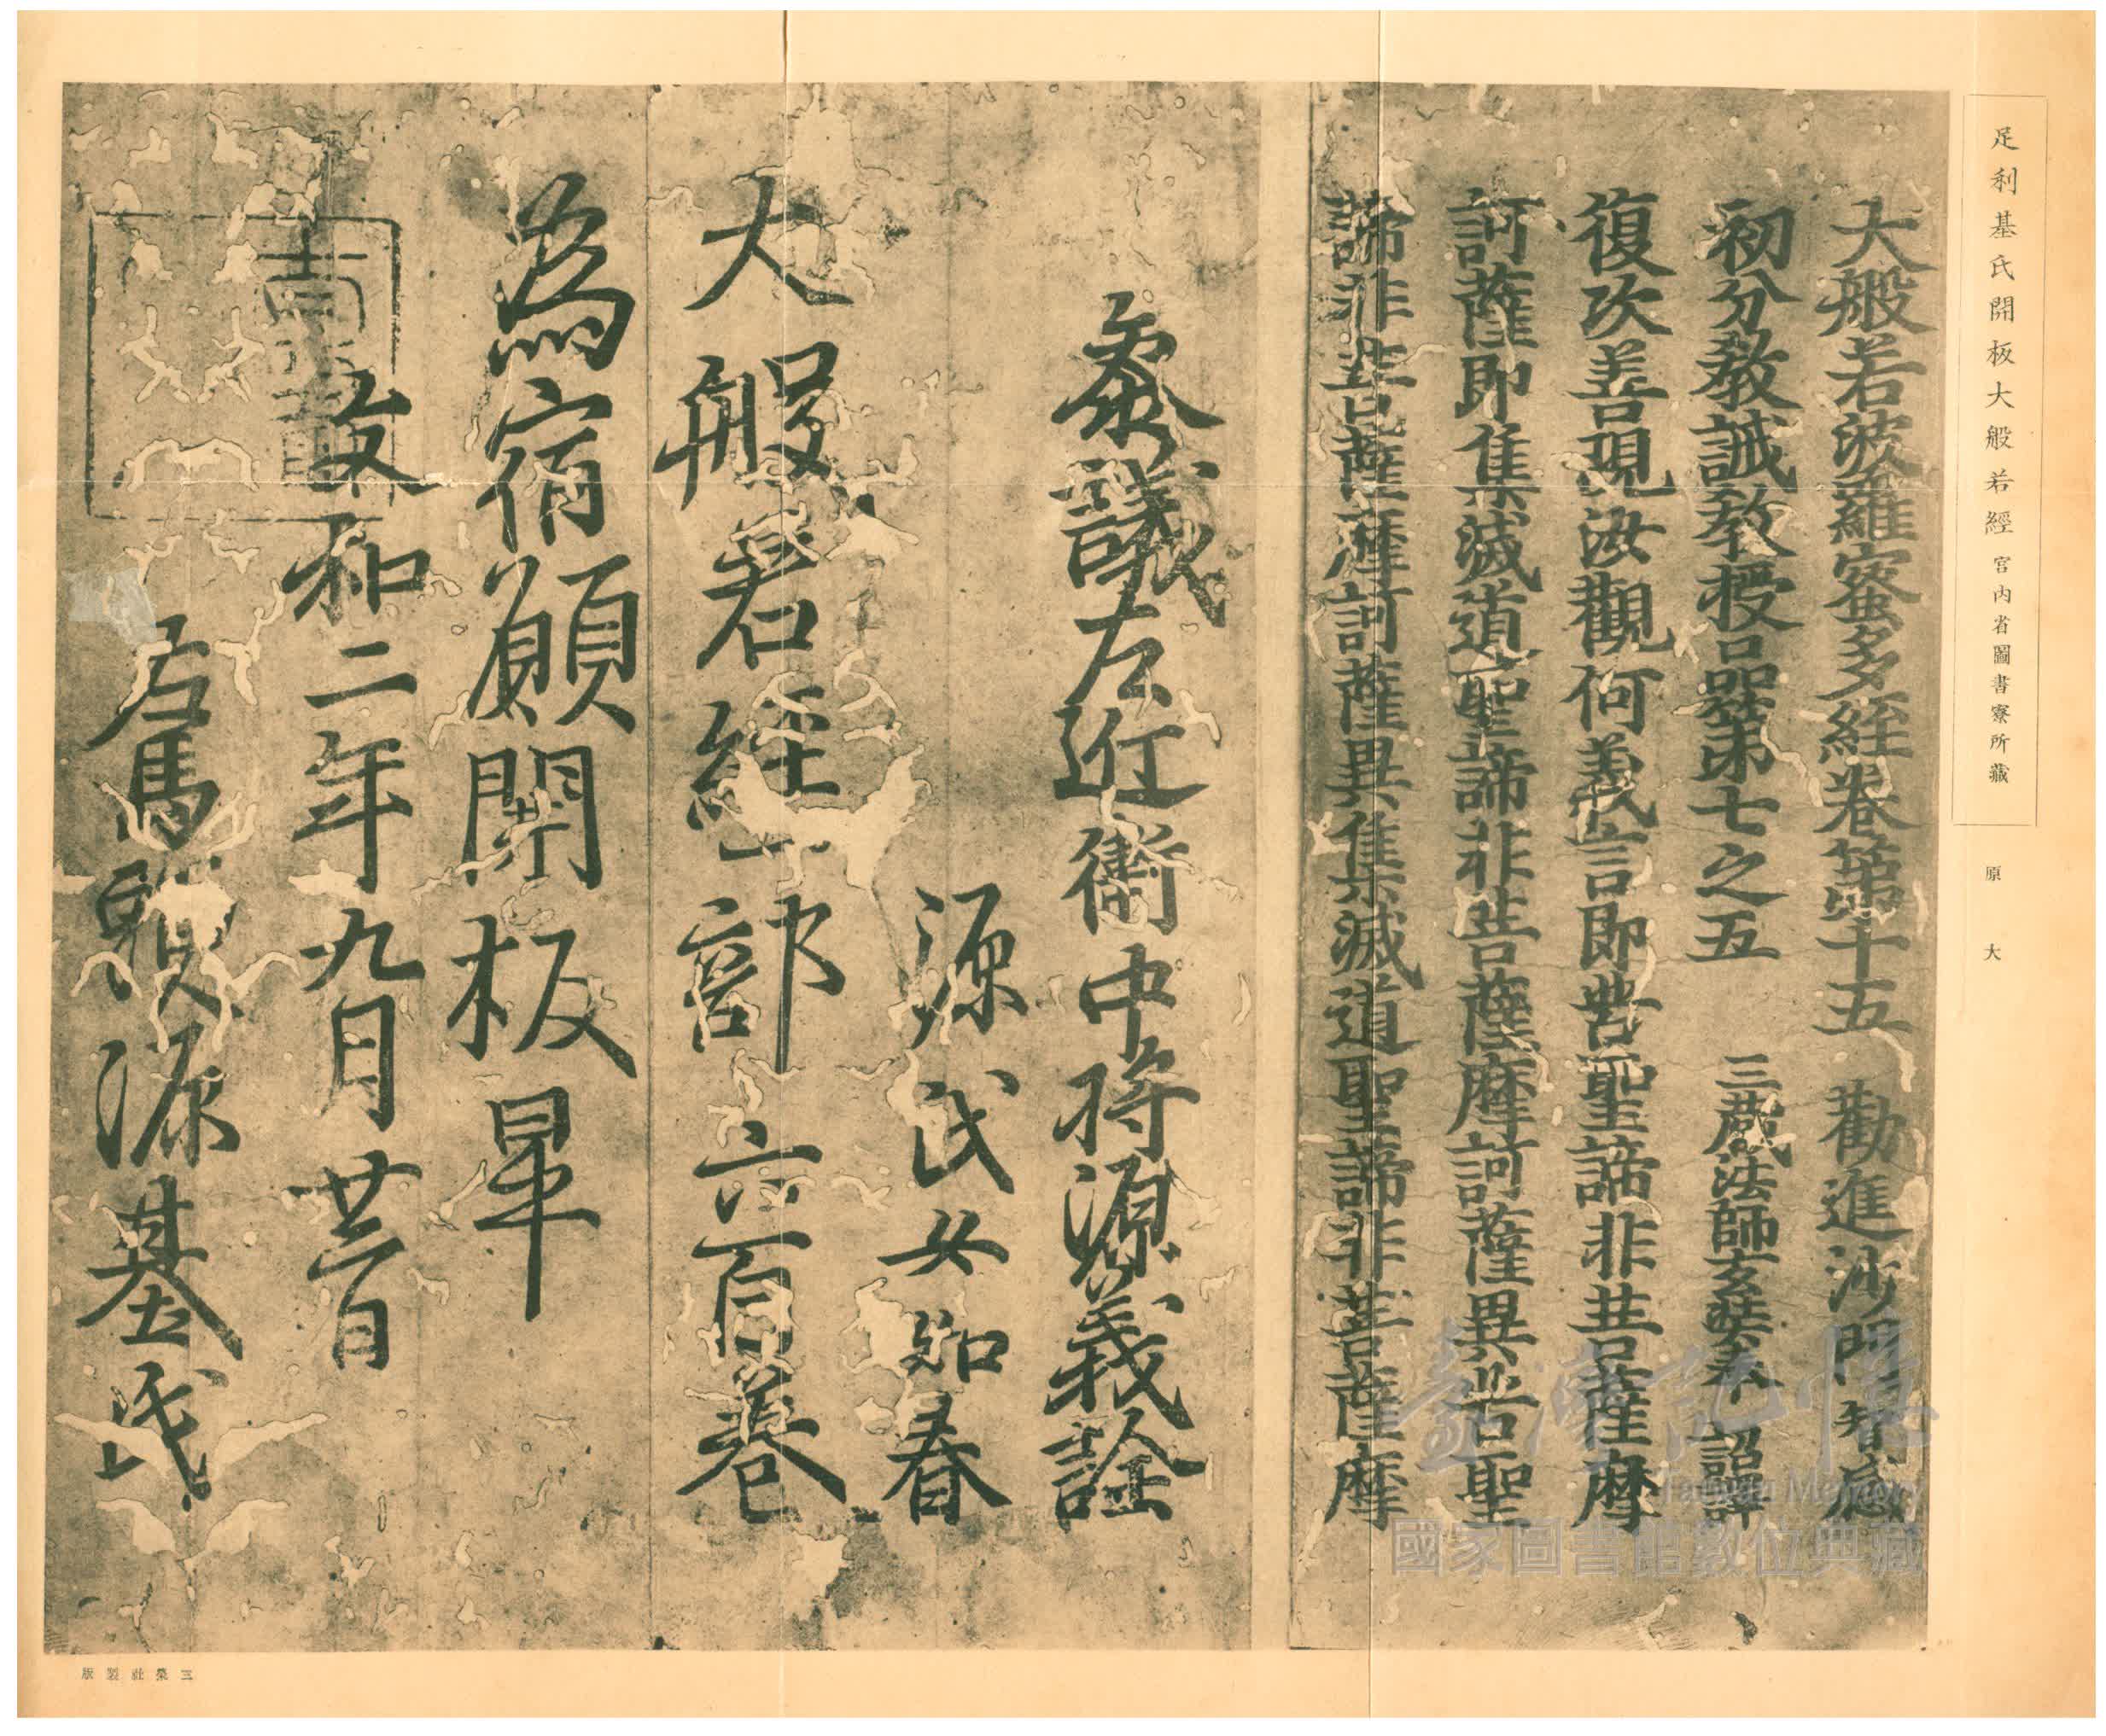 足利基氏開板大般若經 宮內省圖書寮所藏
原大
大般若波羅蜜多經卷第十五 勸進沙門智感
初分教誡教授品第七之五 三藏法師玄奘奉 詔譯
復次善現汝觀何義言即苦聖諦非菩薩摩
訶薩即集滅道聖諦非菩薩摩訶薩異苦聖
諦非菩薩摩訶薩異集滅道聖諦非菩薩摩
參議左近衛中將源義詮
源氏女知春
大般若經一部六百卷
為宿願開板畢
文和二年九月廿一日
左馬頭源基氏
三榮社製版
臺灣記憶
Taiwan Memory
國家圖書館數位典藏